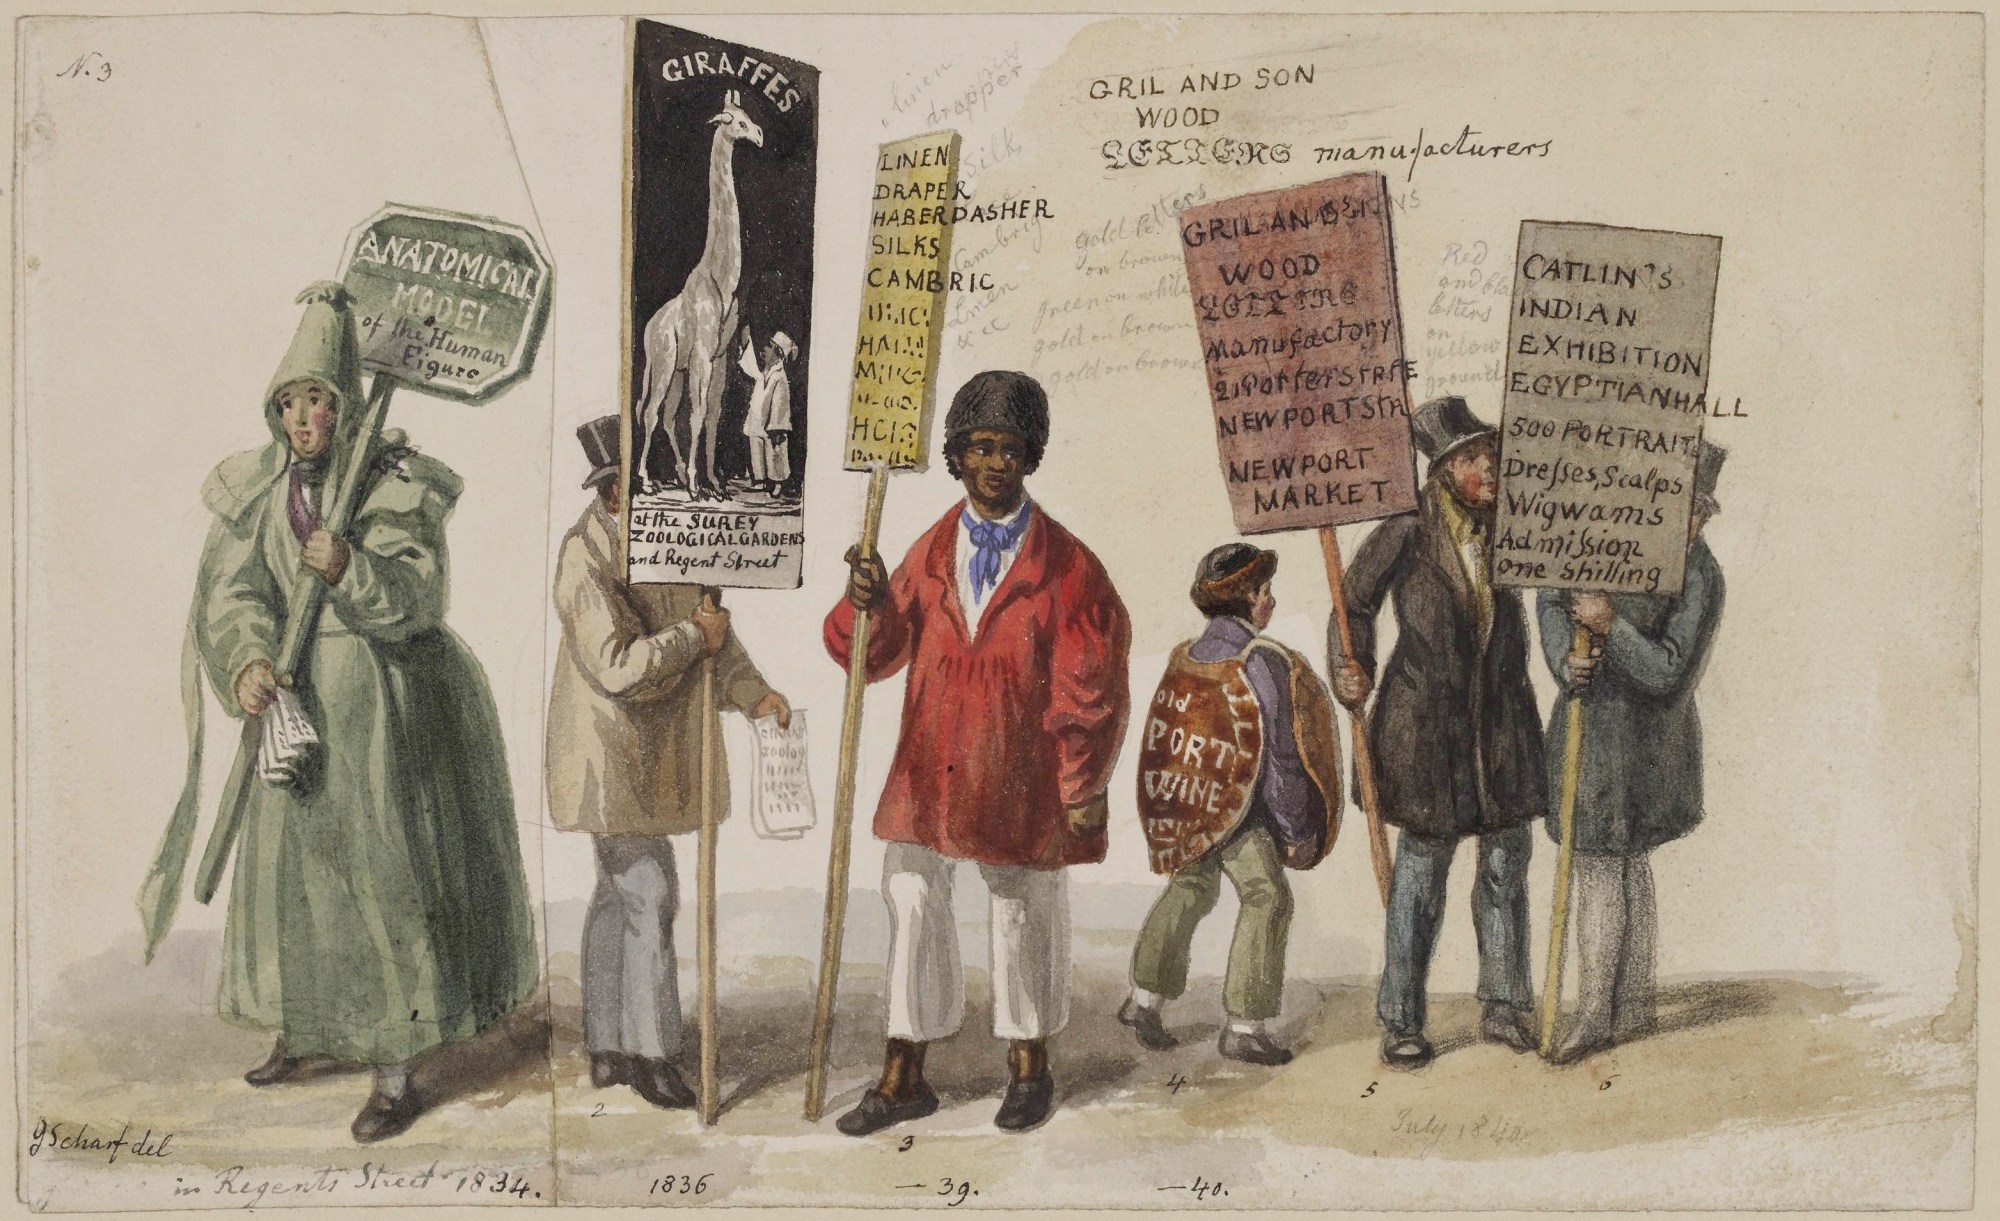 N. 3
ANATOMICAL
MODEL
of the Human
Figure
GIRAFFES
at the SUREY
ZOOLOGICAL GARDENS
and Regent Street
linen
drapper
Silk
Linen
&cc
LINEN
DRAPER
HABERDASHER
SILKS
CAMBRIC
GRIL AND SON
WOOD
LETTERS manufacturers
gold letters
on brown
green on white
gold on brown
gold on brown
old
PORT
WINE
GRIL AND
WOOD
LETTERS
manufactory
NEWPORT STR
NEWPORT
MARKET
Red
and black
letters
on
yellow
ground
CATLIN'S
INDIAN
EXHIBITION
EGYPTIAN HALL
500 PORTRAITS
Dresses, Scalps
Wigwams
Admission
one shilling
2
3
4
5
6
July 1840
G Scharf del
in Regents Street 1834.
1836
— 39.
— 40.